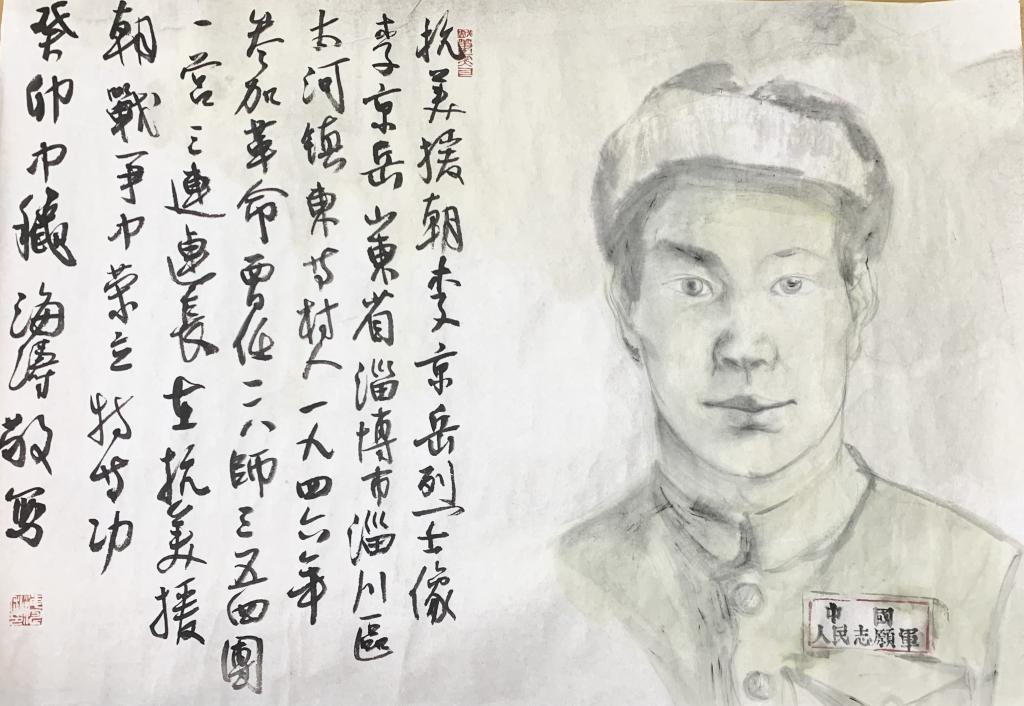 抗美援朝李京岳烈士像
李京岳山東省淄博市淄川區
太河镇東等村人一九四六年
参加革命曾任一一八師三五四團
一营三連連長在抗美援
朝戰争中荣立特等功
癸卯中龝海濤敬写
中國
人民志願軍